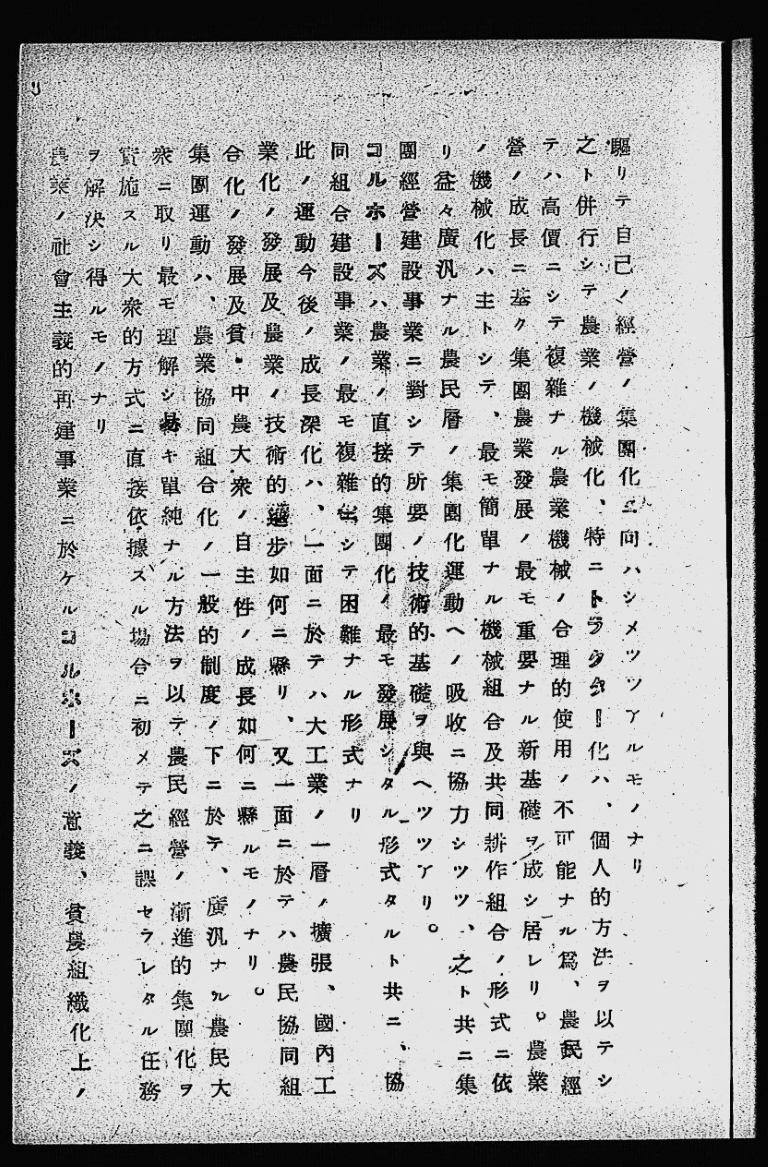 驅リテ自己ノ經營ノ集團化ニ向ハシメツツアルモノナリ
之ト併行シテ農業ノ機械化、特ニトラクター化ハ、個人的方法ヲ以テシ
テハ高價ニシテ複雜ナル農業機械ノ合理的使用ノ不可能ナル爲、農民經
營ノ成長ニ基ク集團農業發展ノ最モ重要ナル新基礎ヲ成シ居レリ。農業
ノ機械化ハ主トシテ、最モ簡單ナル機械組合及共同耕作組合ノ形式ニ依
リ益々廣汎ナル農民層ノ集團化運動ヘノ吸收ニ協力シツツ、之ト共ニ集
團經營建設事業ニ對シテ所要ノ技術的基礎ヲ與ヘツツアリ。
コルホーズハ農業ノ直接的集團化ノ最モ發展シタル形式タルト共ニ、協
同組合建設事業ノ最モ複雜ニシテ困難ナル形式ナリ
此ノ運動今後ノ成長深化ハ、一面ニ於テハ大工業ノ一層ノ擴張、國內工
業化ノ發展及農業ノ技術的進步如何ニ懸リ、又一面ニ於テハ農民協同組
合化ノ發展及貧・中農大衆ノ自主性ノ成長如何ニ懸ルモノナリ。
集團運動ハ、農業協同組合化ノ一般的制度ノ下ニ於テ、廣汎ナル農民大
衆ニ取リ最モ理解シ易キ單純ナル方法ヲ以テ農民經營ノ漸進的集團化ヲ
實施スル大衆的方式ニ直接依據スル場合ニ初メテ之ニ課セラレタル任務
ヲ解決シ得ルモノナリ
農業ノ社會主義的再建事業ニ於ケルコルホーズノ意義、貧農組織化上ノ